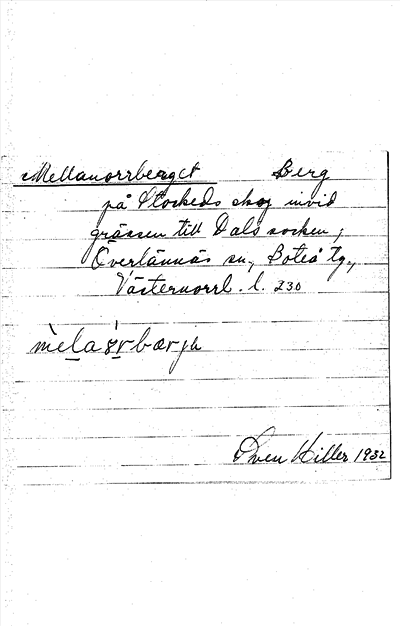 Mellanorrberget Berg
på Stockeds skog invid
gränsen till Dals socken,
Överlännäs sn, Boteå tg,
Västernorrl. l. 230
Sven Hiller 1932